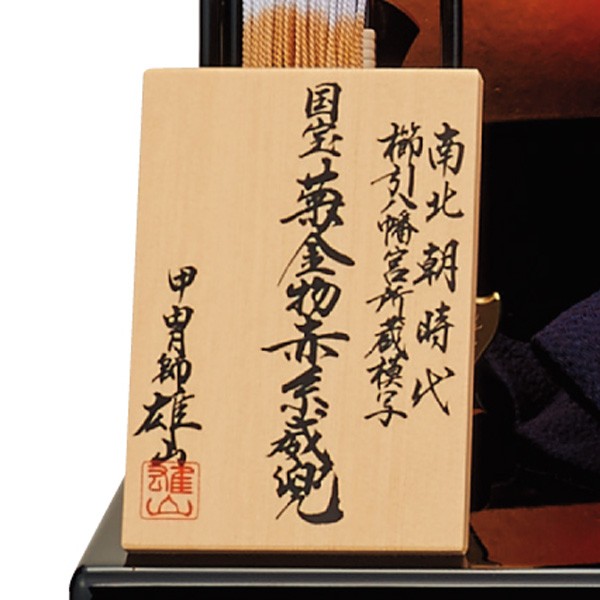 南北朝時代
櫛引八幡宮所蔵模写
国宝菊金物赤糸威兜
甲冑師雄山
雄山